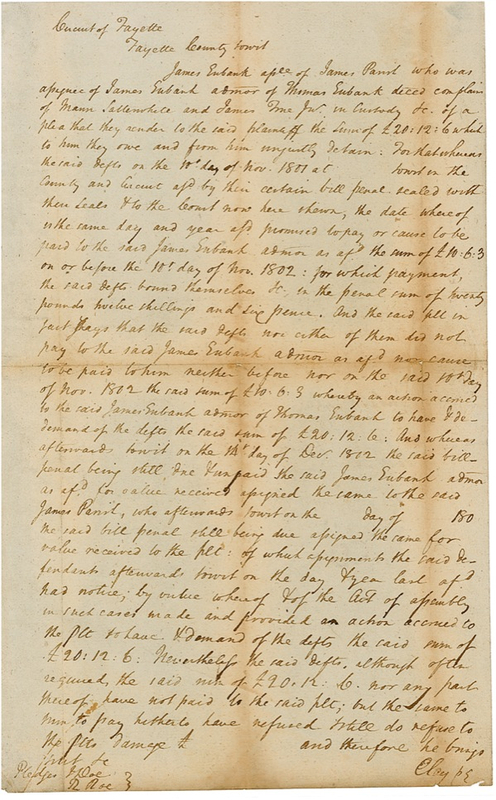 Circuit of Fayette
Fayette County towit
James Eubank asee of James Parrl who was
assignee of James Eubank admor of Thomas Eubank deced complain
of Mann Satterwhite and James True Junr. in Custody &c. of a
plea that they render to the said plaintiff the Sum of £20:12:6 which
to him they owe and from him unjustly detain: For that whereas
the said defts on the 10th day of Nov. 1801 at towit in the
County and Circuit afd by their certain bill penal sealed with
their Seals & to the Court now here shewn, the date whereof
is the same day and year afd promised to pay or cause to be
paid to the said James Eubank admor as afd the sum of £10.6.3
on or before the 10th day of Nov. 1802: for which payment,
the said defts bound themselves &c. in the penal sum of twenty
pounds twelve shillings and six pence. And the said plt in
fact says that the said defts nor either of them did not
pay to the said James Eubank admor as afd nor cause
to be paid to him neither before nor on the said 10th day
of Nov. 1802 the said sum of £10.6.3 whereby an action accrued
to the said James Eubank admor of Thomas Eubank to have & de-
demand of the defts the said sum of £20:12:6: And whereas
afterwards towit on the day of Decr. 1802 the said bill
penal being still due & unpaid the said James Eubank admor
as afd for value received assigned the same to the said
James Parrl, who afterwards towit on the day of 180
the said bill penal still being due assigned the same for
value received to the plt: of which assignments the said de-
fendants afterwards towit on the day & year last afd
had notice; by virtue whereof & of the Act of assembly
in such cases made and provided an action accrued to
the plt to have & demand of the defts the said sum of
£20:12:6: Nevertheless the said defts. although often
required, the said sum of £20.12.6. nor any part
thereof have not paid to the said plt; but the same to
him to pay hitherto have refused & still do refuse to
the plts damage £ and therefore he brings
suit &c
Pledges J Doe
R Roe
Clay p Q